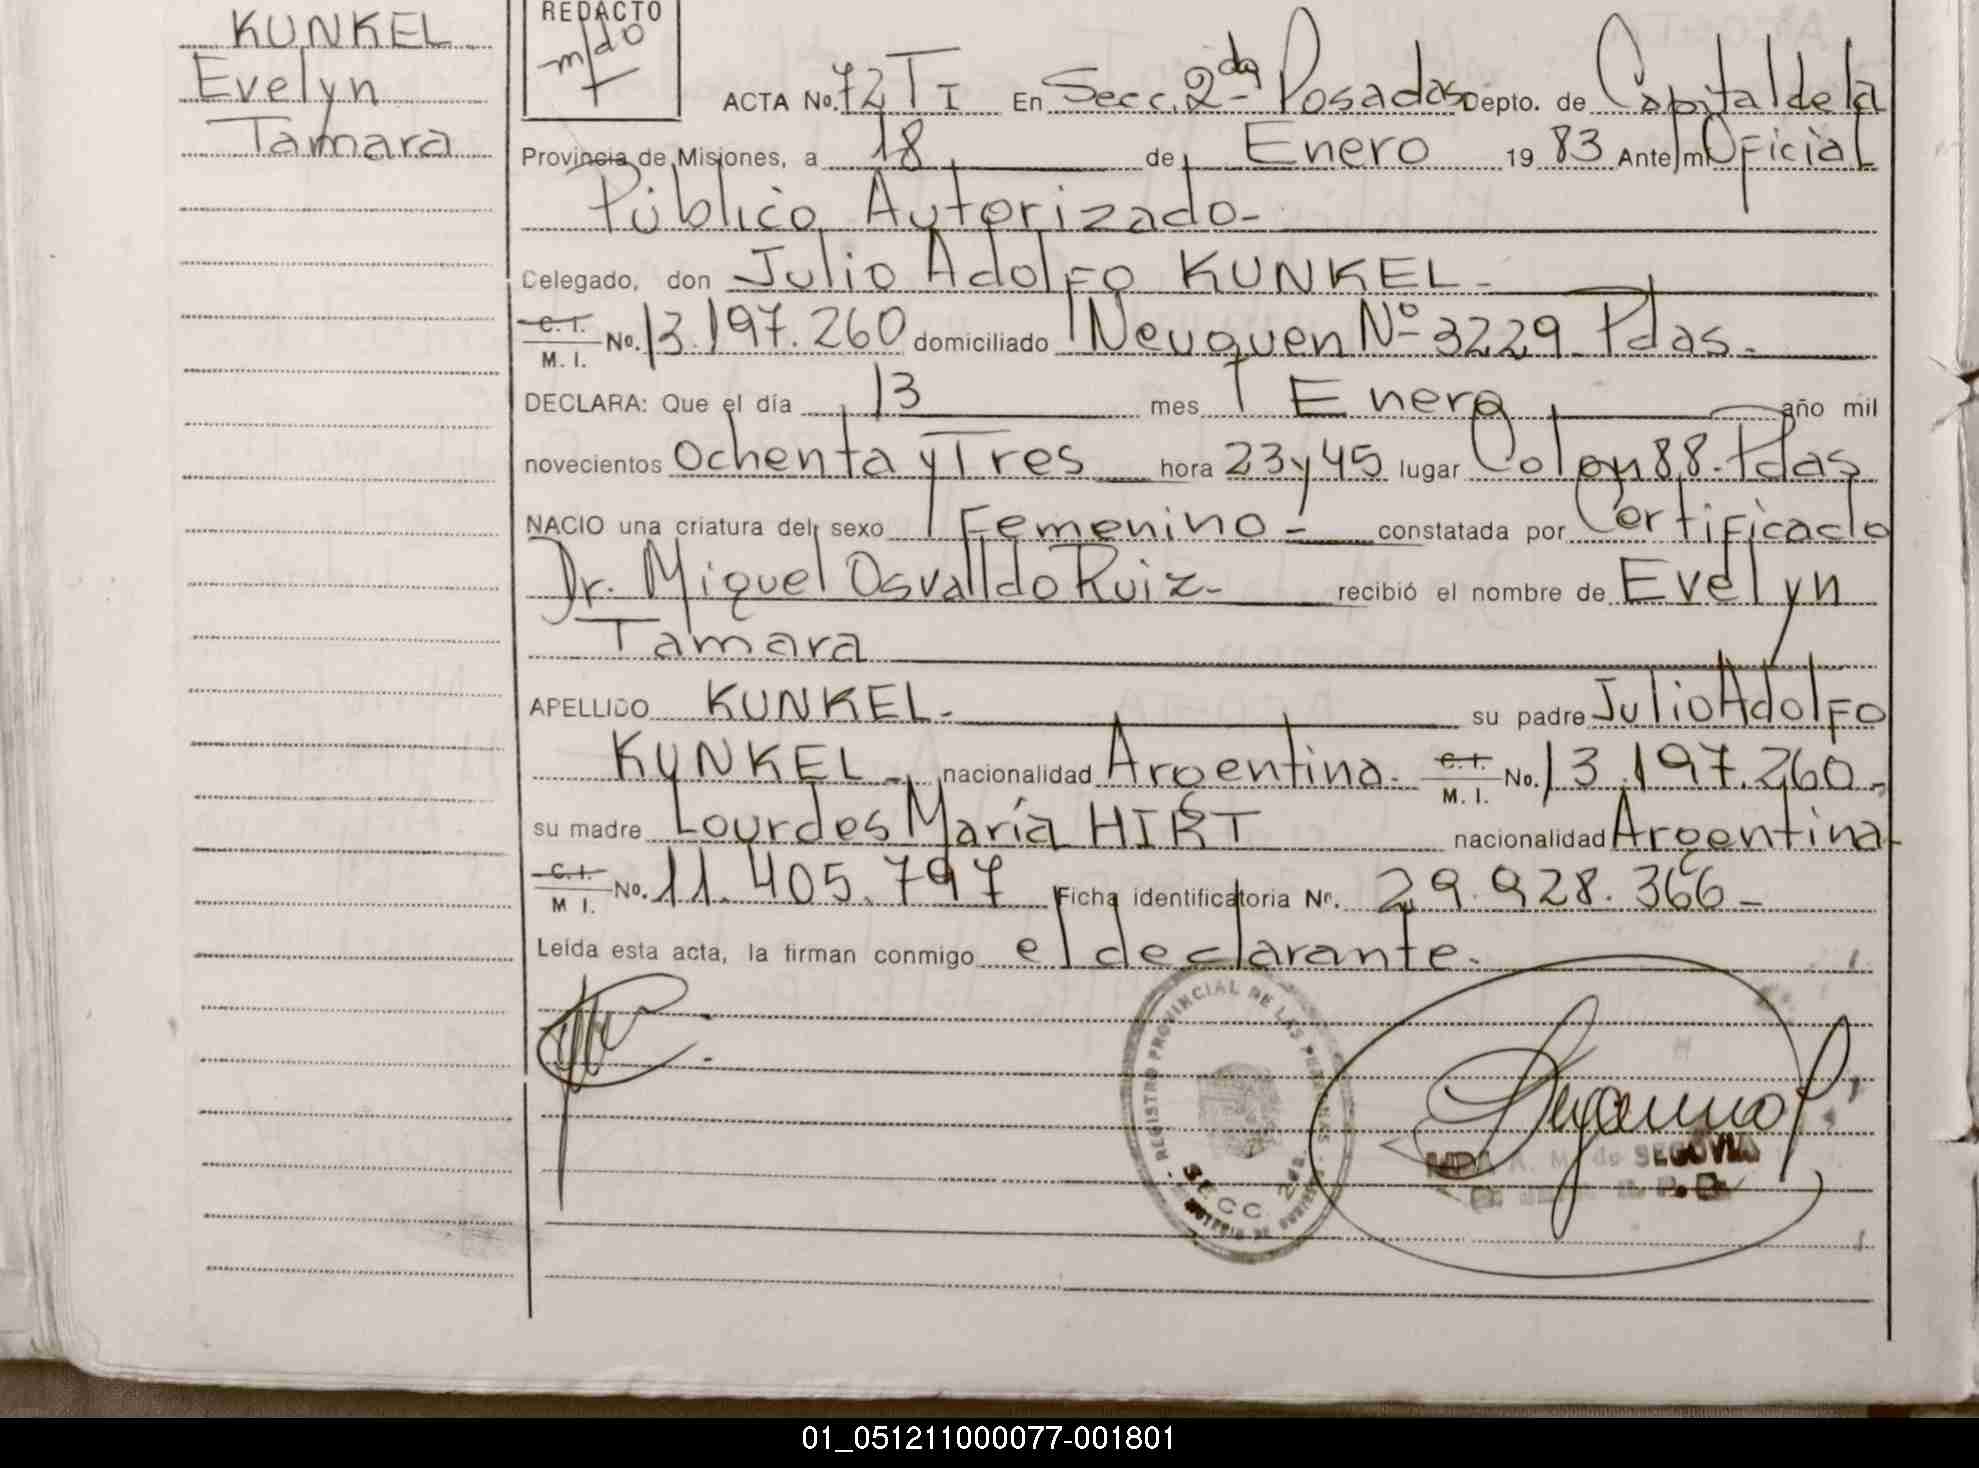 KUNKEL
Evelyn
Tamara
REDACTO
ACTA No. 72 T I En Secc. 2da Posadas Depto. de Capital de la
Provincia de Misiones, a 18 de Enero 19 83 Ante mi Oficial
Público Autorizado-
Delegado, don Julio Adolfo KUNKEL-
C. I. / M. I. No. 13.197.260 domiciliado Neuquen Nº 3229 Pdas.
DECLARA: Que el día 13 mes Enero año mil
novecientos Ochenta y Tres hora 23 y 45 lugar Colon 88. Pdas
NACIO una criatura del sexo Femenino - constatada por Certificado
Dr. Miguel Osvalldo Ruiz- recibió el nombre de Evelyn
Tamara
APELLIDO KUNKEL- su padre Julio Adolfo
KUNKEL-, nacionalidad Argentina. C. I. / M. I. No. 13.197.260-
su madre Lourdes María HIRT nacionalidad Argentina-
C. I. / M I. No. 11.405.797 Ficha identificatoria Nr. 29.928.366-
Leída esta acta, la firman conmigo el declarante.
REGISTRO PROVINCIAL DE LAS PERSONAS
SECC 2da
de SEGOVIA
01_051211000077-001801